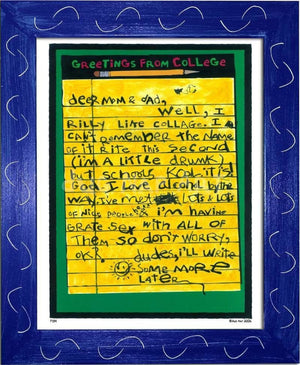 GREETINGS FROM COLLEGE
deer mom & dad,
Well, I
RILLY LIKE COLLAGE. I
CAN'T remember the NAME
OF IT RITE THIS SECOND
(I'M A LITTLE DRUNK)
but schools KOOL. it's
God. I Love alcohol by the
WAY I've met LOTS & LOTS
OF NICE PEOPLE & I'm HAVING
GRATE SEX WITH ALL OF
THEM SO DON'T WORRY,
OK? dudes, I'LL WRITE
SOME MORE
LATER